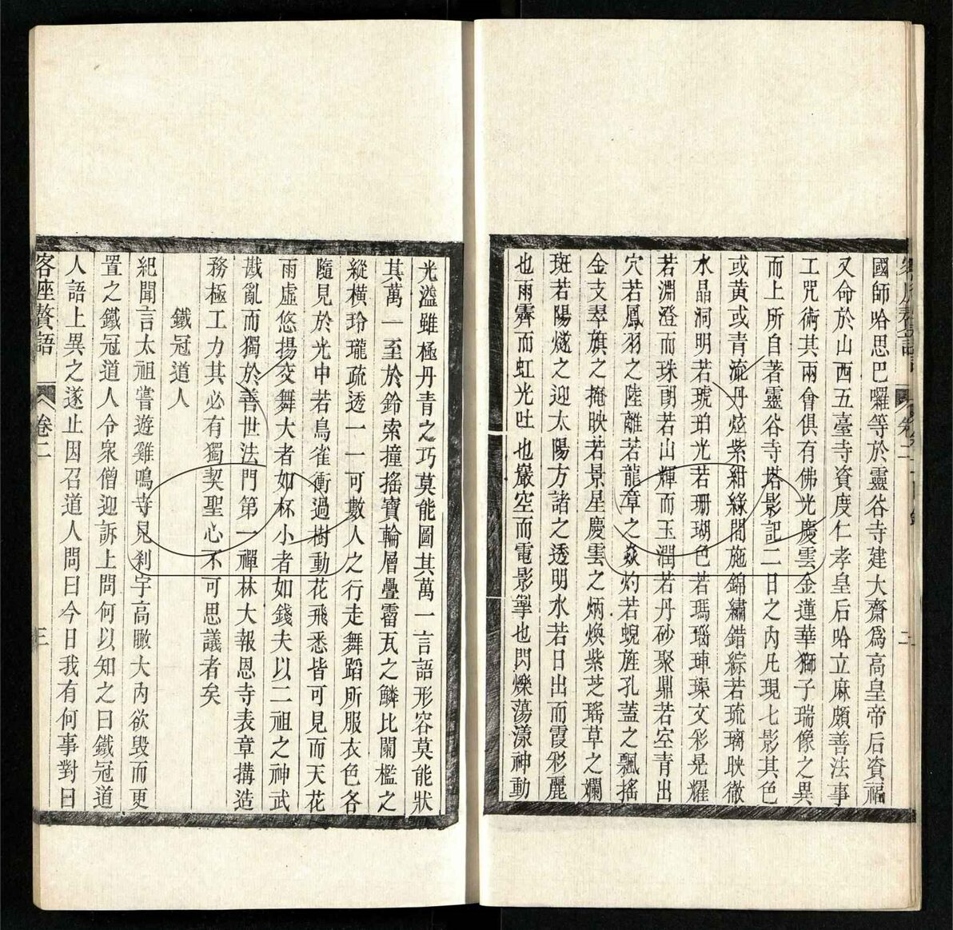 國師哈思巴囉等於靈谷寺建大齋爲高皇帝后資福
又命於山西五臺寺資度仁孝皇后哈立麻頗善法事
工咒術其兩會俱有佛光慶雲金蓮華獅子瑞像之異
而上所自著靈谷寺塔影記二日之內凡現七影其色
或黃或青流丹炫紫紺綠閒施錦繡錯綜若琉璃映徹
水晶洞明若琥珀光若珊瑚色若瑪瑙硨磲文彩晃耀
若淵澄而珠朗若山輝而玉潤若丹砂聚鼎若空青出
穴若鳳羽之陸離若龍章之焱灼若蜺旌孔蓋之飄搖
金支翠旗之掩映若景星慶雲之炳煥紫芝瑤草之斕
斑若陽燧之迎太陽方諸之透明水若日出而霞彩麗
也雨霽而虹光吐也巖空而電影掣也閃爍蕩漾神動
光溢雖極丹青之巧莫能圖其萬一言語形容莫能狀
其萬一至於鈴索撞搖寶輪層疊霤瓦之鱗比闌檻之
縱橫玲瓏疏透一一可數人之行走舞蹈所服衣色各
隨見於光中若鳥雀衝過樹動花飛悉皆可見而天花
雨虛悠揚交舞大者如杯小者如錢夫以二祖之神武
戡亂而獨於善世法門第一禪林大報恩寺表章搆造
務極工力其必有獨契聖心不可思議者矣
鐵冠道人
紀聞言太祖嘗遊雞鳴寺見剎宇高瞰大內欲毀而更
置之鐵冠道人令衆僧迎訴上問何以知之曰鐵冠道
人語上異之遂止因召道人問曰今日我有何事對曰
客座贅語 卷二 三